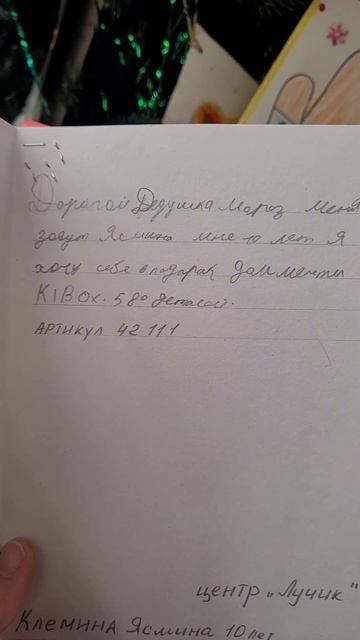 Дорогой Дедушка Мороз меня
зовут Ясмина мне 10 лет Я
хочу себе в подарак
KIBOX. 580 деталей.
АРТИКУЛ 42 111
центр „Лучик"
Клемина Ясмина 10 лет